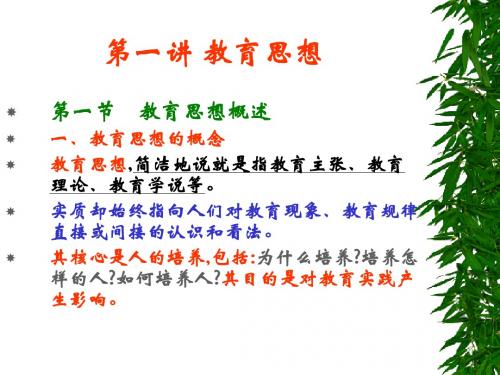 第一讲 教育思想
第一节 教育思想概述
一、教育思想的概念
教育思想,简洁地说就是指教育主张、教育
理论、教育学说等。
实质却始终指向人们对教育现象、教育规律
直接或间接的认识和看法。
其核心是人的培养,包括:为什么培养?培养怎
样的人?如何培养人?其目的是对教育实践产
生影响。